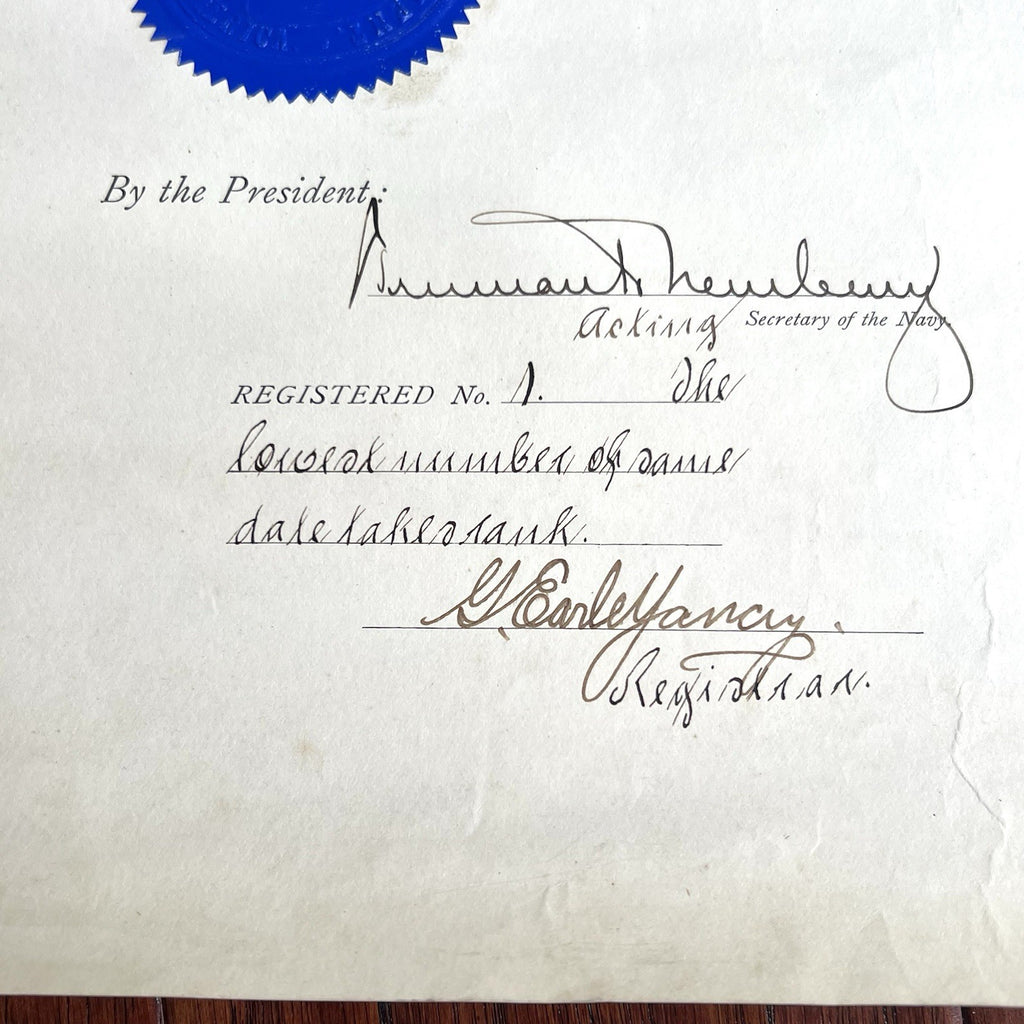 By the President:
Truman H. Newberry
Acting Secretary of the Navy.
REGISTERED No. 1. The
lowest number of same
date takes rank.
G. Earle Yancy.
Registrar.